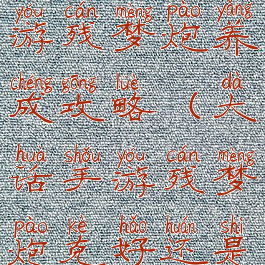 yóu cán mèng pào yǎng
游残梦炮养
chéng gōng lüè dà
成攻略（大
huà shǒu yóu cán mèng
话手游残梦
pào kè hǎo huán shì
炮克好还是